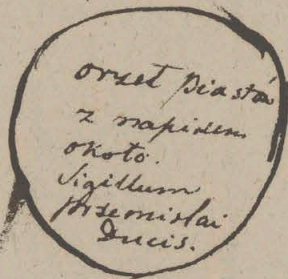 orzeł Piastów
z napisem
około.
Sigillum
przemislai
Ducis.